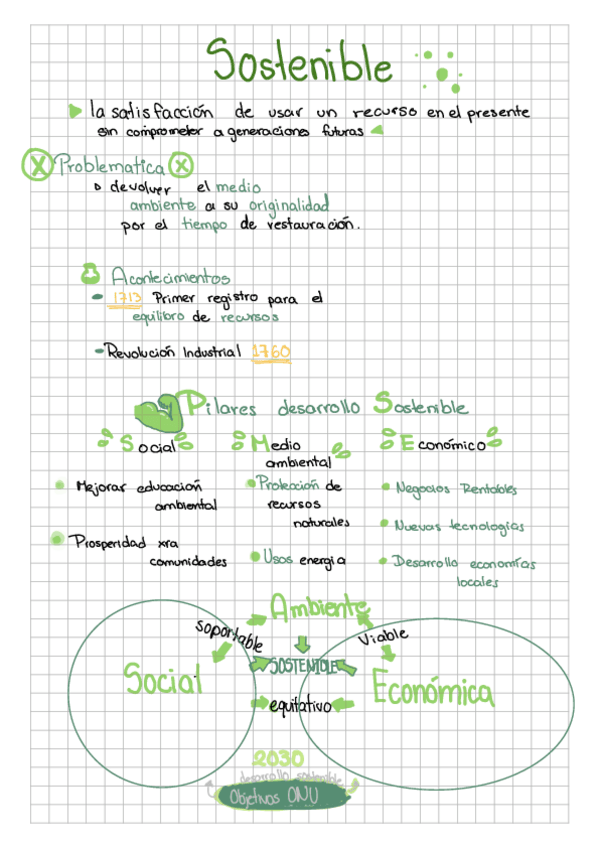 Sostenible
la satisfacción de usar un recurso en el presente
sin comprometer a generaciones futuras
Problematica
devolver el medio
ambiente a su originalidad
por el tiempo de restauración.
Acontecimientos
1713 Primer registro para el
equilibro de recursos
Revolución Industrial 1760
Pilares desarrollo Sostenible
Social
Medio
ambiental
Económico
Mejorar educación
ambiental
Prosperidad xra
comunidades
Protección de
recursos
naturales
Usos energia
Negocios Rentables
Nuevas tecnologías
Desarrollo economías
locales
Ambiente
soportable
Viable
SOSTENIBLE
Social
Económica
equitativo
2030
desarrollo sostenible
Objetivos ONU